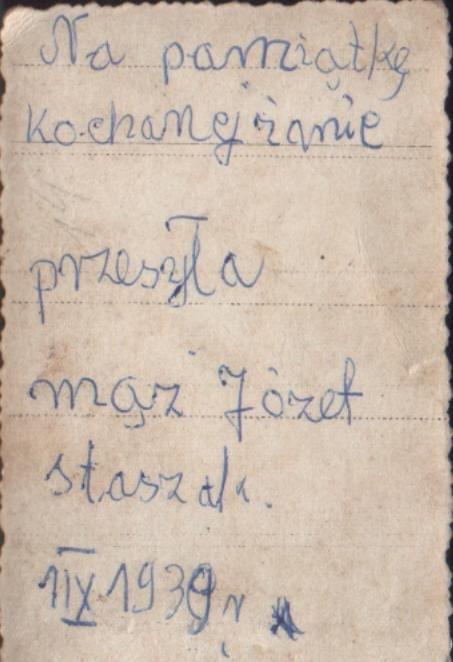 Na pamiątkę
kochanej żmie
przesyła
mąż Józef
staszak.
1 IX 1939 r